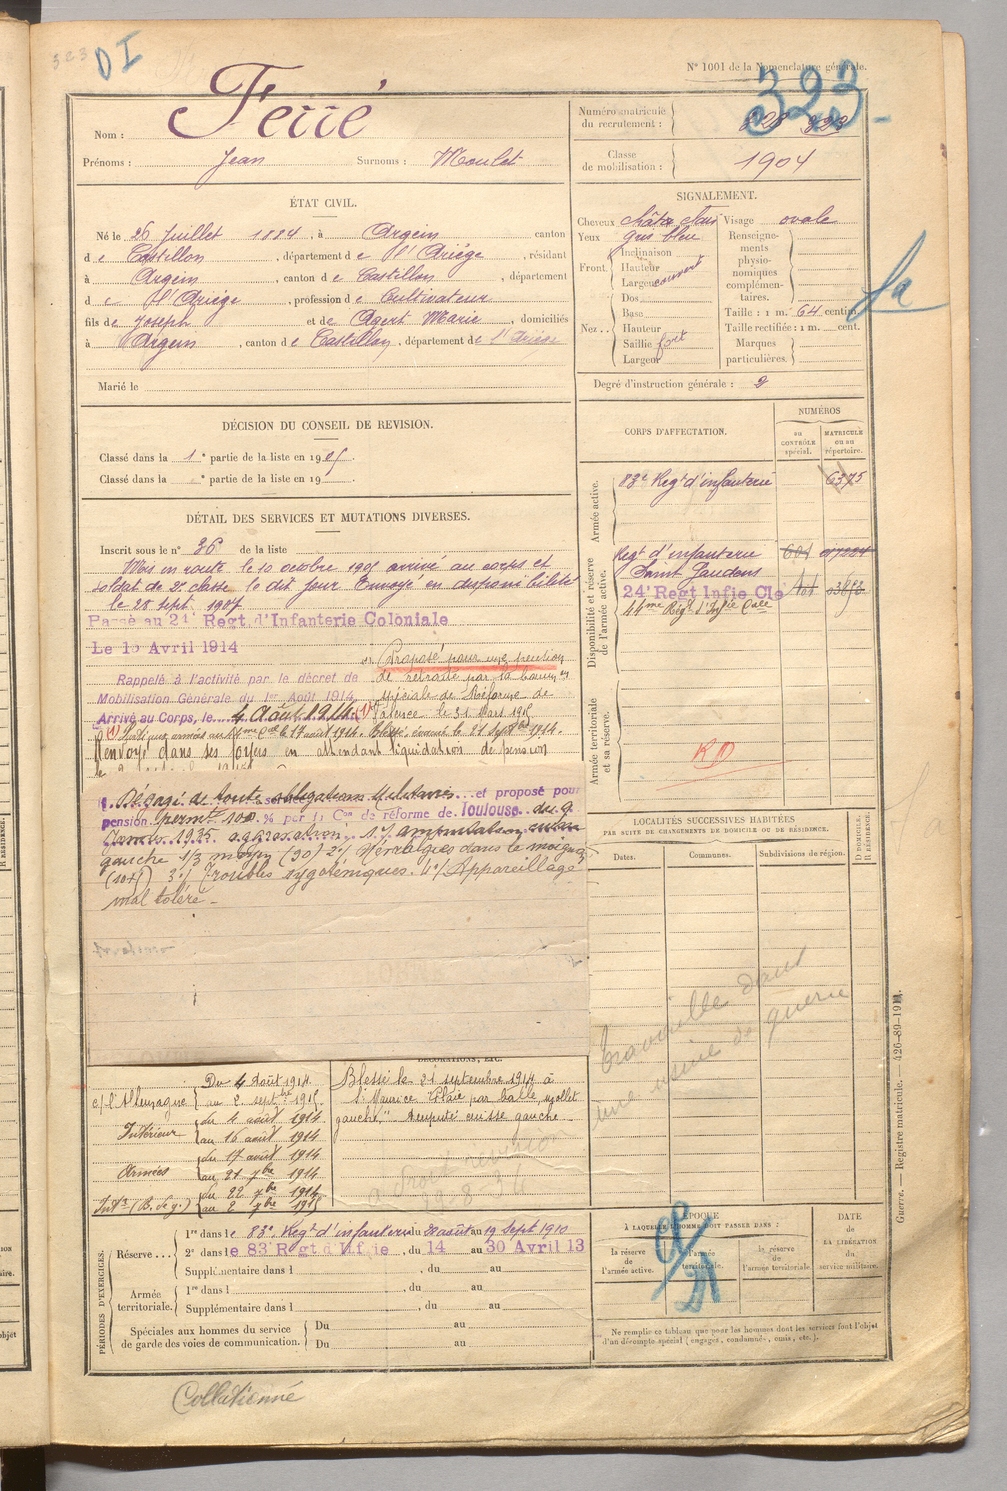 323
DI
N° 1001 de la Nomenclature générale.
323
Nom : Ferré
Prénoms : Jean Surnoms : Moulot
Numéro matricule du recrutement : 323
Classe de mobilisation : 1904
ÉTAT CIVIL.
Né le 26 Juillet 1884, à Argein canton
de Castillon, département de l'Ariège, résidant
à Argein, canton de Castillon, département
de l'Ariège, profession de Cultivateur
fils de Joseph et de Agert Marie, domiciliés
à Argein, canton de Castillon, département de l'Ariège
Marié le
SIGNALEMENT.
Cheveux châtn clair
Yeux gris bleu
Front. Inclinaison
Hauteur
Largeur couvert
Nez.. Dos
Base
Hauteur
Saillie fort
Largeur
Visage ovale
Renseignements physionomiques complémentaires.
Taille : 1 m. 64 centim.
Taille rectifiée : 1 m. cent.
Marques particulières.
Degré d'instruction générale : 2
DÉCISION DU CONSEIL DE REVISION.
Classé dans la 1e partie de la liste en 1905
Classé dans la e partie de la liste en 19
DÉTAIL DES SERVICES ET MUTATIONS DIVERSES.
Inscrit sous le n° 36 de la liste
Mis en route le 10 octobre 1905 arrivé au corps et
soldat de 2e classe le dit jour Envoyé en disponibilité
le 28 sept. 1907
Passé au 24 Regt d'Infanterie Coloniale
Le 15 Avril 1914
Rappelé à l'activité par le décret de
Mobilisation Générale du 1er Août 1914
Arrivé au Corps, le 4 Août 1914 (1)
Proposé pour une pension
de retraite par la comm on
spéciale de Réforme de
Valence le 31 Mars 1915
Blessé, évacué le 21 Septbre 1914.
Renvoyé dans ses foyers en attendant liquidation de pension
Dégagé de toutes obligations Militaires et proposé pour
pension permte 100 % par la Con de réforme de Toulouse du 9
Janvier 1935 aggravation 1°/ amputation cuisse
gauche 1/3 moyen (90) 2°/ Névralgies dans le moignon
3°/ Troubles 4°/ Appareillage
mal toléré -
CORPS D'AFFECTATION.
NUMÉROS
au CONTRÔLE spécial.
MATRICULE ou au répertoire.
Armée active.
83e Regt d'infanterie 6375
Disponibilité et réserve de l'armée active.
Regt d'infanterie
Saint Gaudens
24e Regt Infie Cle
44me Régt d'Infie Cale
Armée territoriale et sa réserve.
RD
LOCALITÉS SUCCESSIVES HABITÉES
PAR SUITE DE CHANGEMENTS DE DOMICILE OU DE RÉSIDENCE.
Dates. Communes. Subdivisions de région. D DOMICILE. R RÉSIDENCE.
travaille dans
une usine de guerre
c/ l'Allemagne Du 4 Août 1914
au 2 septbre 1915.
Intérieur du 4 août 1914
au 16 août 1914
Armées du 17 août 1914
au 21 7bre 1914
Intr (B. de g.) du 22 7bre 1914
au 2 7bre 1915
DÉCORATIONS, ETC.
Blessé le 21 septembre 1914 à
St Maurice "Plaie par balle, mollet
gauche," Amputé cuisse gauche
PÉRIODES D'EXERCICES.
Réserve... 1re dans le 83e Regt d'infanterie du 28 août au 19 Sept 1910
2e dans le 83 Regt d'Infie, du 14 au 30 Avril 13
Supplémentaire dans l , du au
Armée territoriale. 1re dans l , du au
Supplémentaire dans l , du au
Spéciales aux hommes du service de garde des voies de communication. Du au
Du au
ÉPOQUE
À LAQUELLE L'HOMME DOIT PASSER DANS :
la réserve de l'armée active.
l'armée territoriale.
la réserve de l'armée territoriale.
DATE de LA LIBÉRATION du service militaire.
Ne remplir ce tableau que pour les hommes dont les services font l'objet
d'un décompte spécial (engagés, condamnés, omis, etc.).
Guerre. — Registre matricule. — 426-89-1911.
Collationné